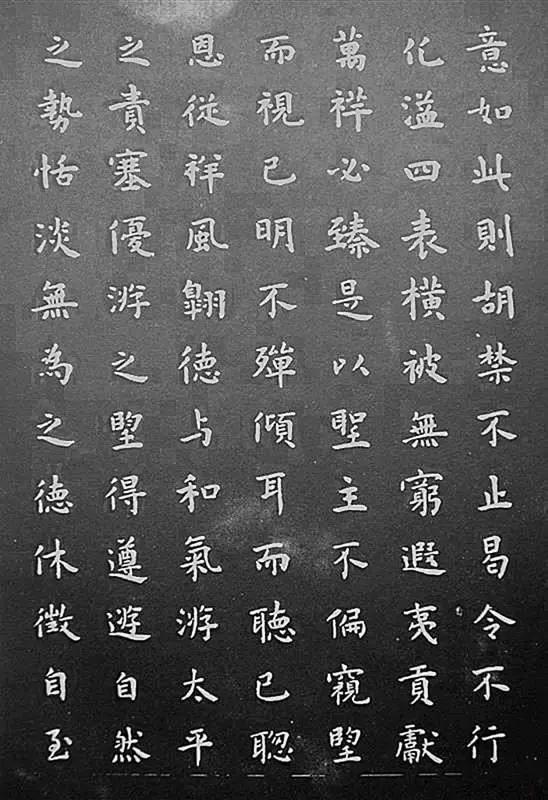 意如此則胡禁不止曷令不行
化溢四表橫被無窮遐夷貢獻
萬祥必臻是以聖主不偏窺望
而視已明不殫傾耳而聽已聰
恩從祥風翱德与和氣游太平
之責塞優游之望得遵遊自然
之勢恬淡無為之德休徵自至